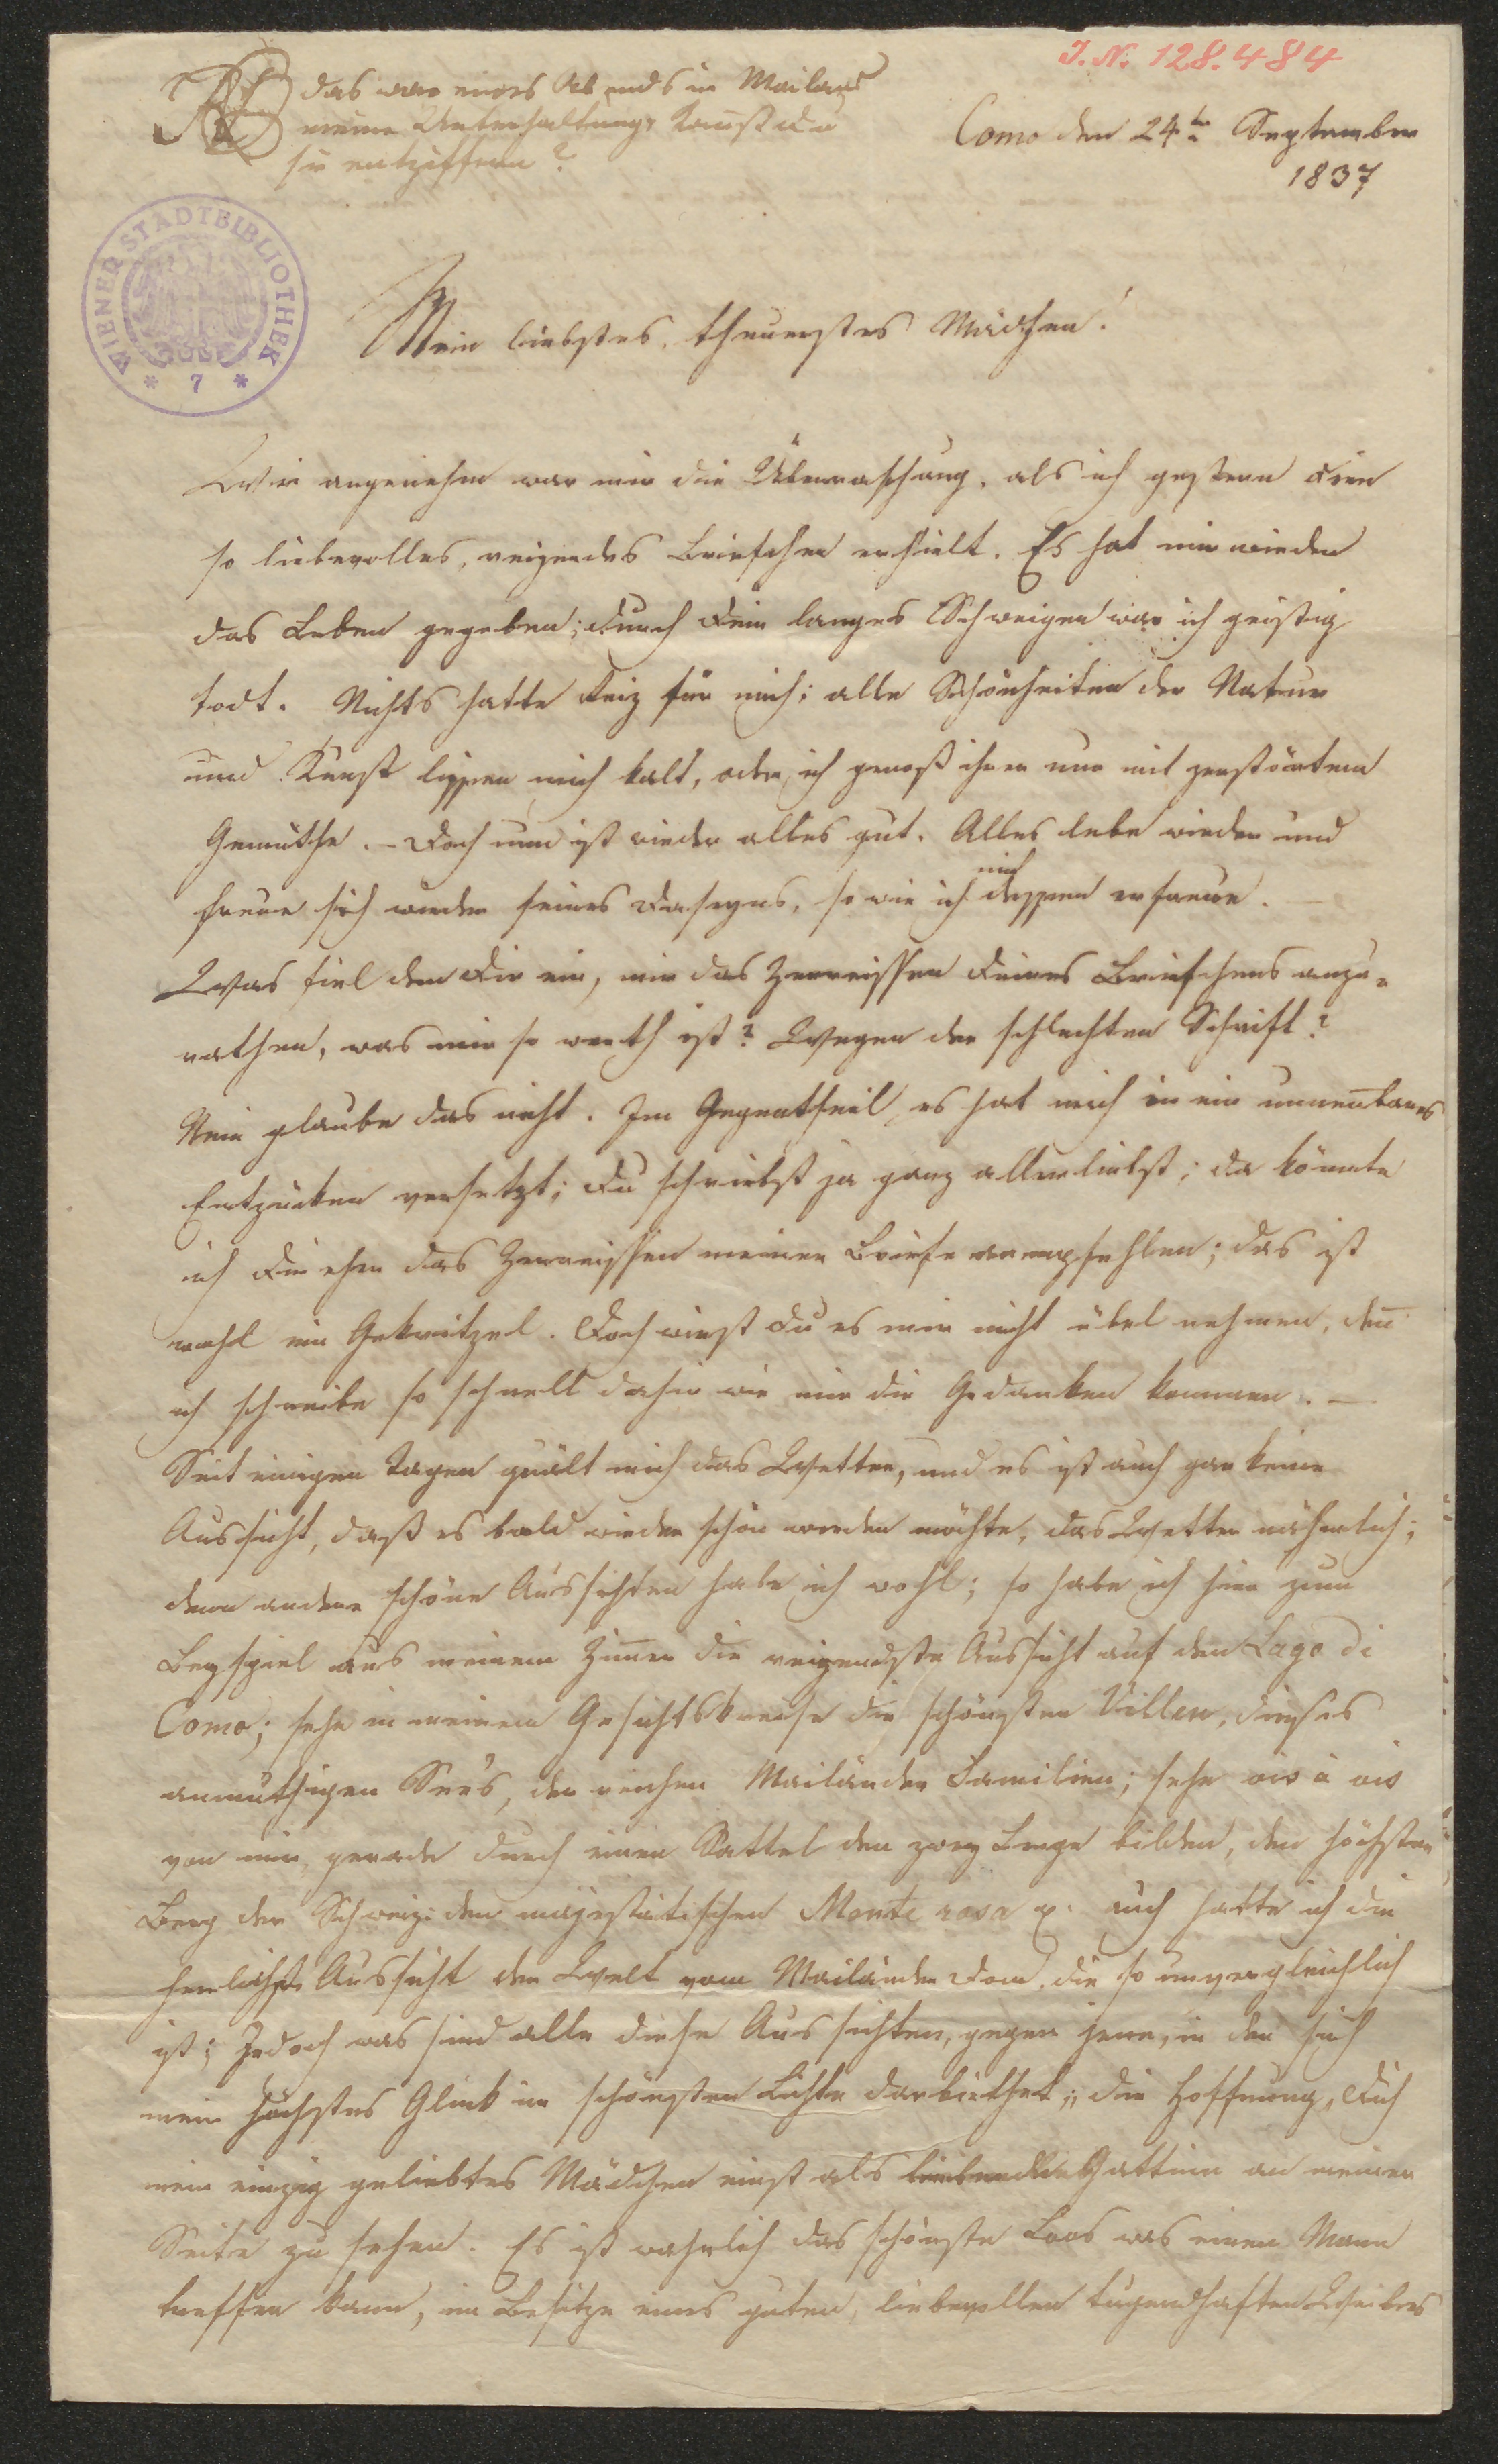 I. N. 128.484
das war eines Abends in Mailand
meine Unterhaltung, kannst du
sie entziffern?
Como den 24ten September
1837
WIENER STADTBIBLIOTHEK
* 7 *
Mein liebstes, theuerstes Mädchen!
Wie angenehm war mir die Überraschung, als ich gestern Dein
so liebevolles, reizendes Briefchen erhielt. Es hat mir wieder
das Leben gegeben; durch Dein langes Schweigen war ich geistig
todt. Nichts hatte Reiz für mich; alle Schönheiten der Natur
und Kunst liessen mich kalt, oder ich genoß ihrer nur mit zerstörtem
Gemüthe. – Doch nun ist wieder alles gut. Alles lebe wieder und
freue sich wieder seines Daseyns, so wie ich mich dessen erfreue. –
Was fiel den Dir ein, mir das Zerreissen Deines Briefchens anzu-
rathen, was mir so werth ist? Wegen der schlechten Schrift?
Nein glaube das nicht. Im Gegentheil, es hat mich in ein unnen̄bares
Entzücken versetzt; Du schriebst ja ganz allerliebst; da könnte
ich Dir eher das Zerreissen meiner Briefe anempfehlen; das ist
wohl ein Gekritzel. Doch wirst Du es mir nicht übel nehmen, den̄
ich schreibe so schnell dahin wie mir die Gedanken kommen. –
Seit einigen Tagen quält mich das Wetter, und es ist auch gar keine
Aussicht, daß es bald wieder schön werden möchte, das Wetter nähmlich;
denn andere schöne Aussichten habe ich wohl; so habe ich hier zum
Beyspiel aus meinem Zim̄er die reizendste Aussicht auf den Lago di
Como; sehe in meinem Gesichtskreise die schönsten Villen, dieses
anmuthigen See's, der reichen Mailänder Familien; sehe vis à vis
von mir, gerade durch einen Sattel den zwey Berge bilden, den höchsten
Berg der Schweiz: den majestätischen Monte rosa x. auch hatte ich die
herrlichste Aussicht der Welt vom Mailänder Dom, die so unvergleichlich
ist; Jedoch was sind alle diese Aussichten, gegen jene, in der sich
mein höchstes Glück im schönsten Lichte darbiethet; die Hoffnung, Dich
mein einzig geliebtes Mädchen einst als liebende Gattinn an meiner
Seite zu sehen. Es ist wahrlich das schönste Loos was einen Mann
treffen kann, im Besitze eines guten, liebevollen tugendhaften Weibes